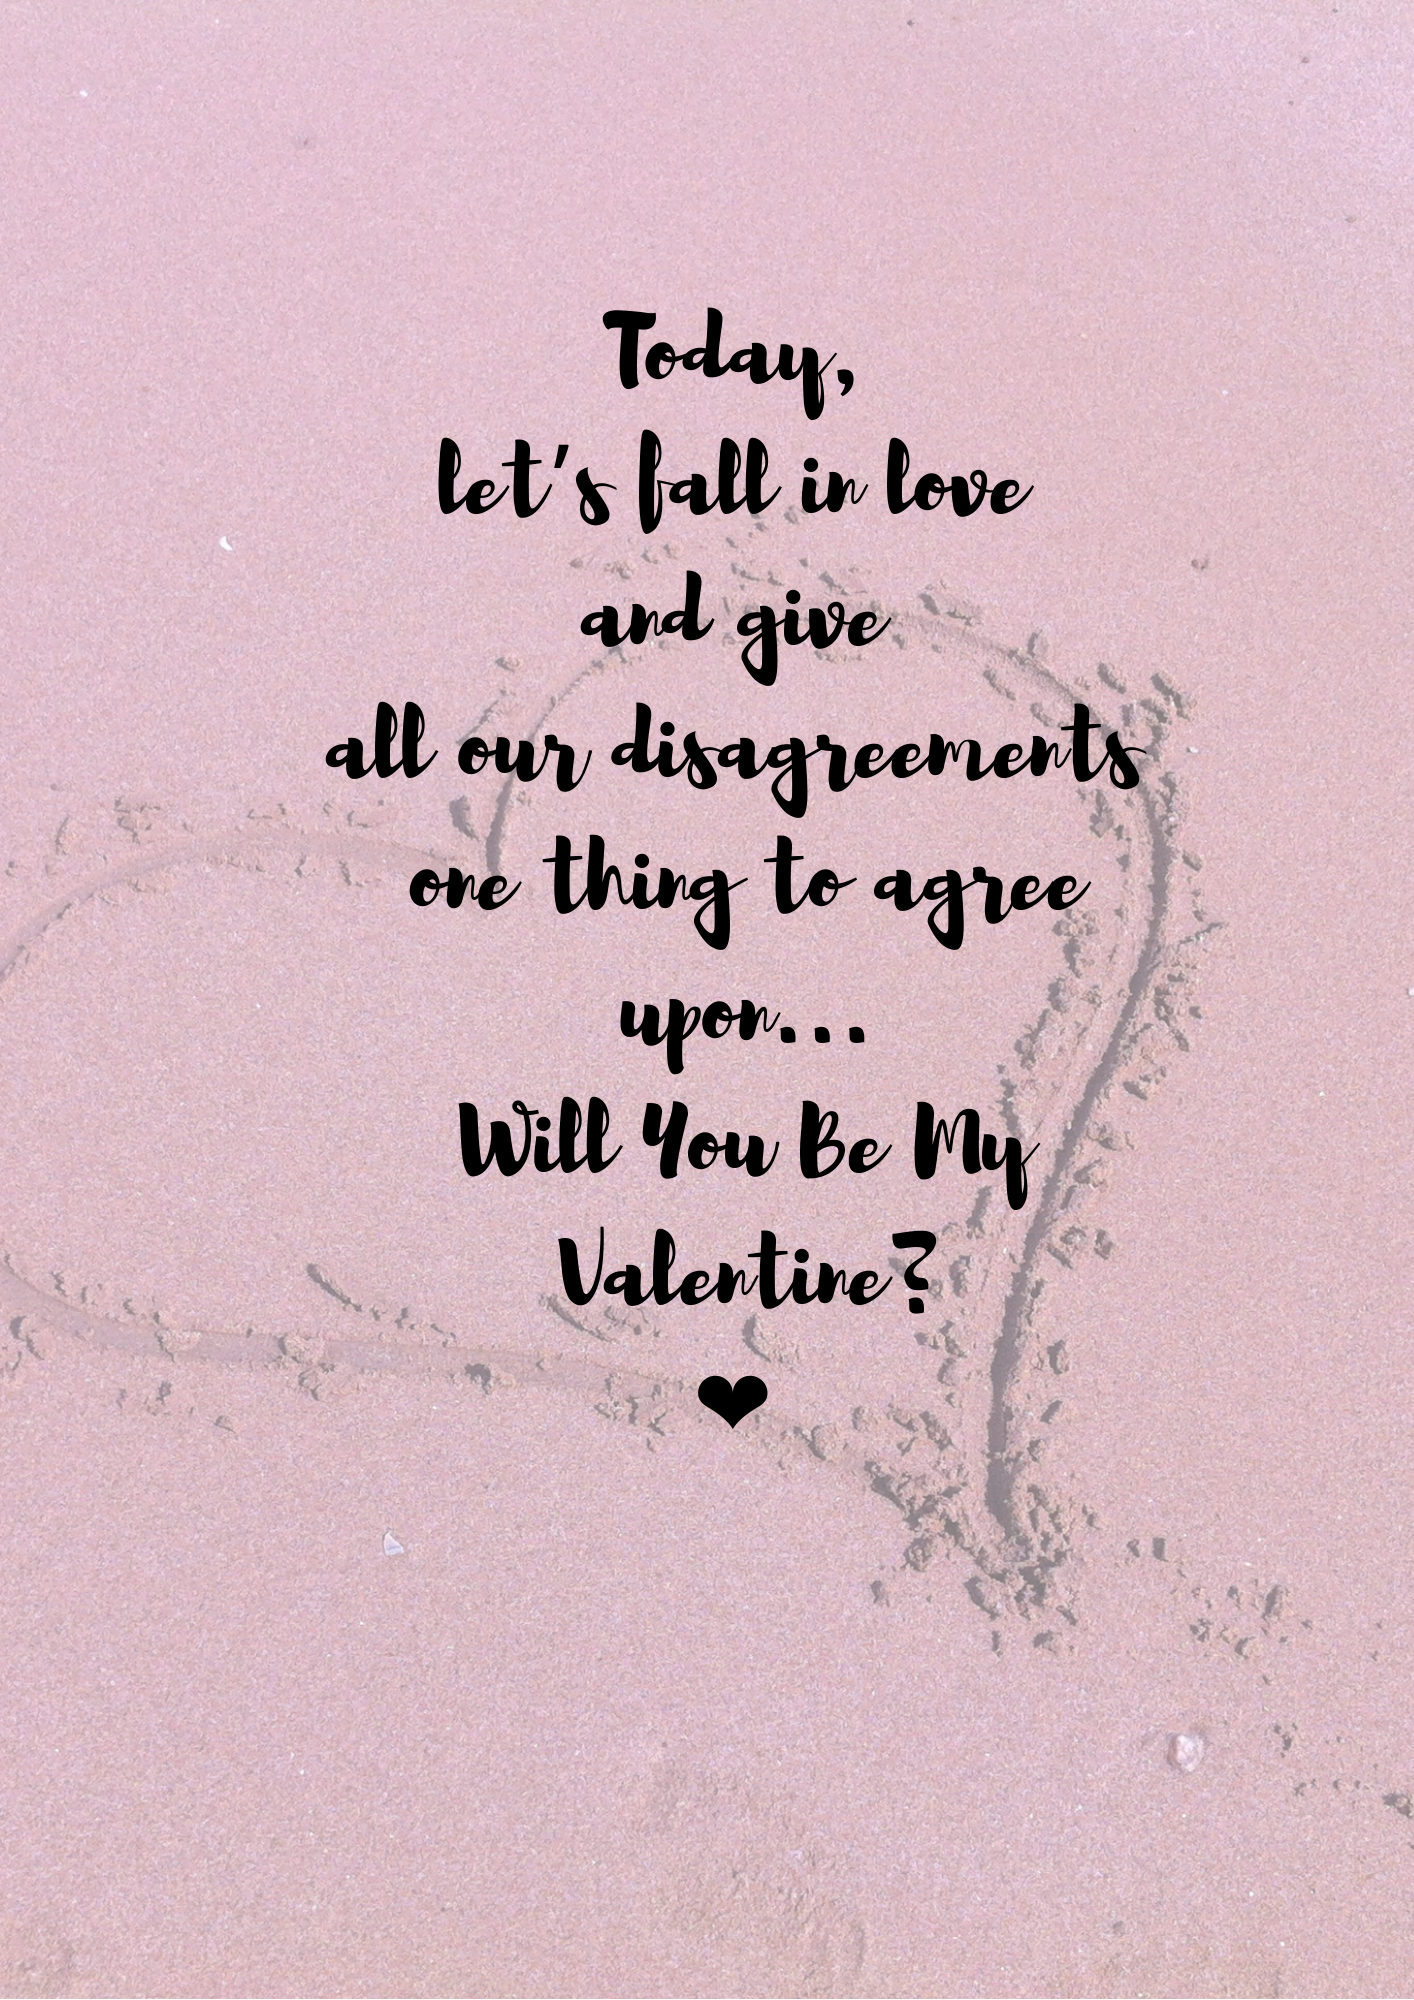 Today,
let's fall in love
and give
all our disagreements
one thing to agree
upon...
Will You Be My
Valentine?
❤